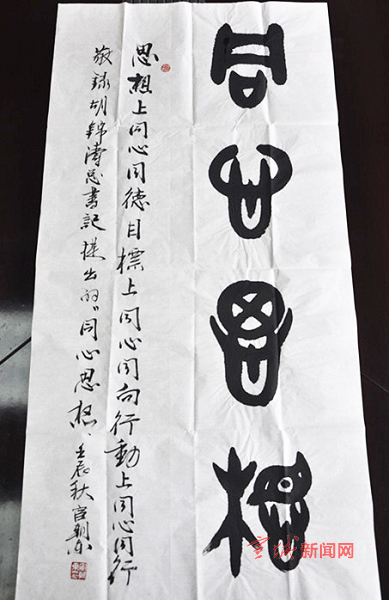 同心思想
思想上同心同德目標上同心同向行動上同心同行
敬録胡锦涛总書記提出的"同心思想"壬辰秋
宣城新闻网